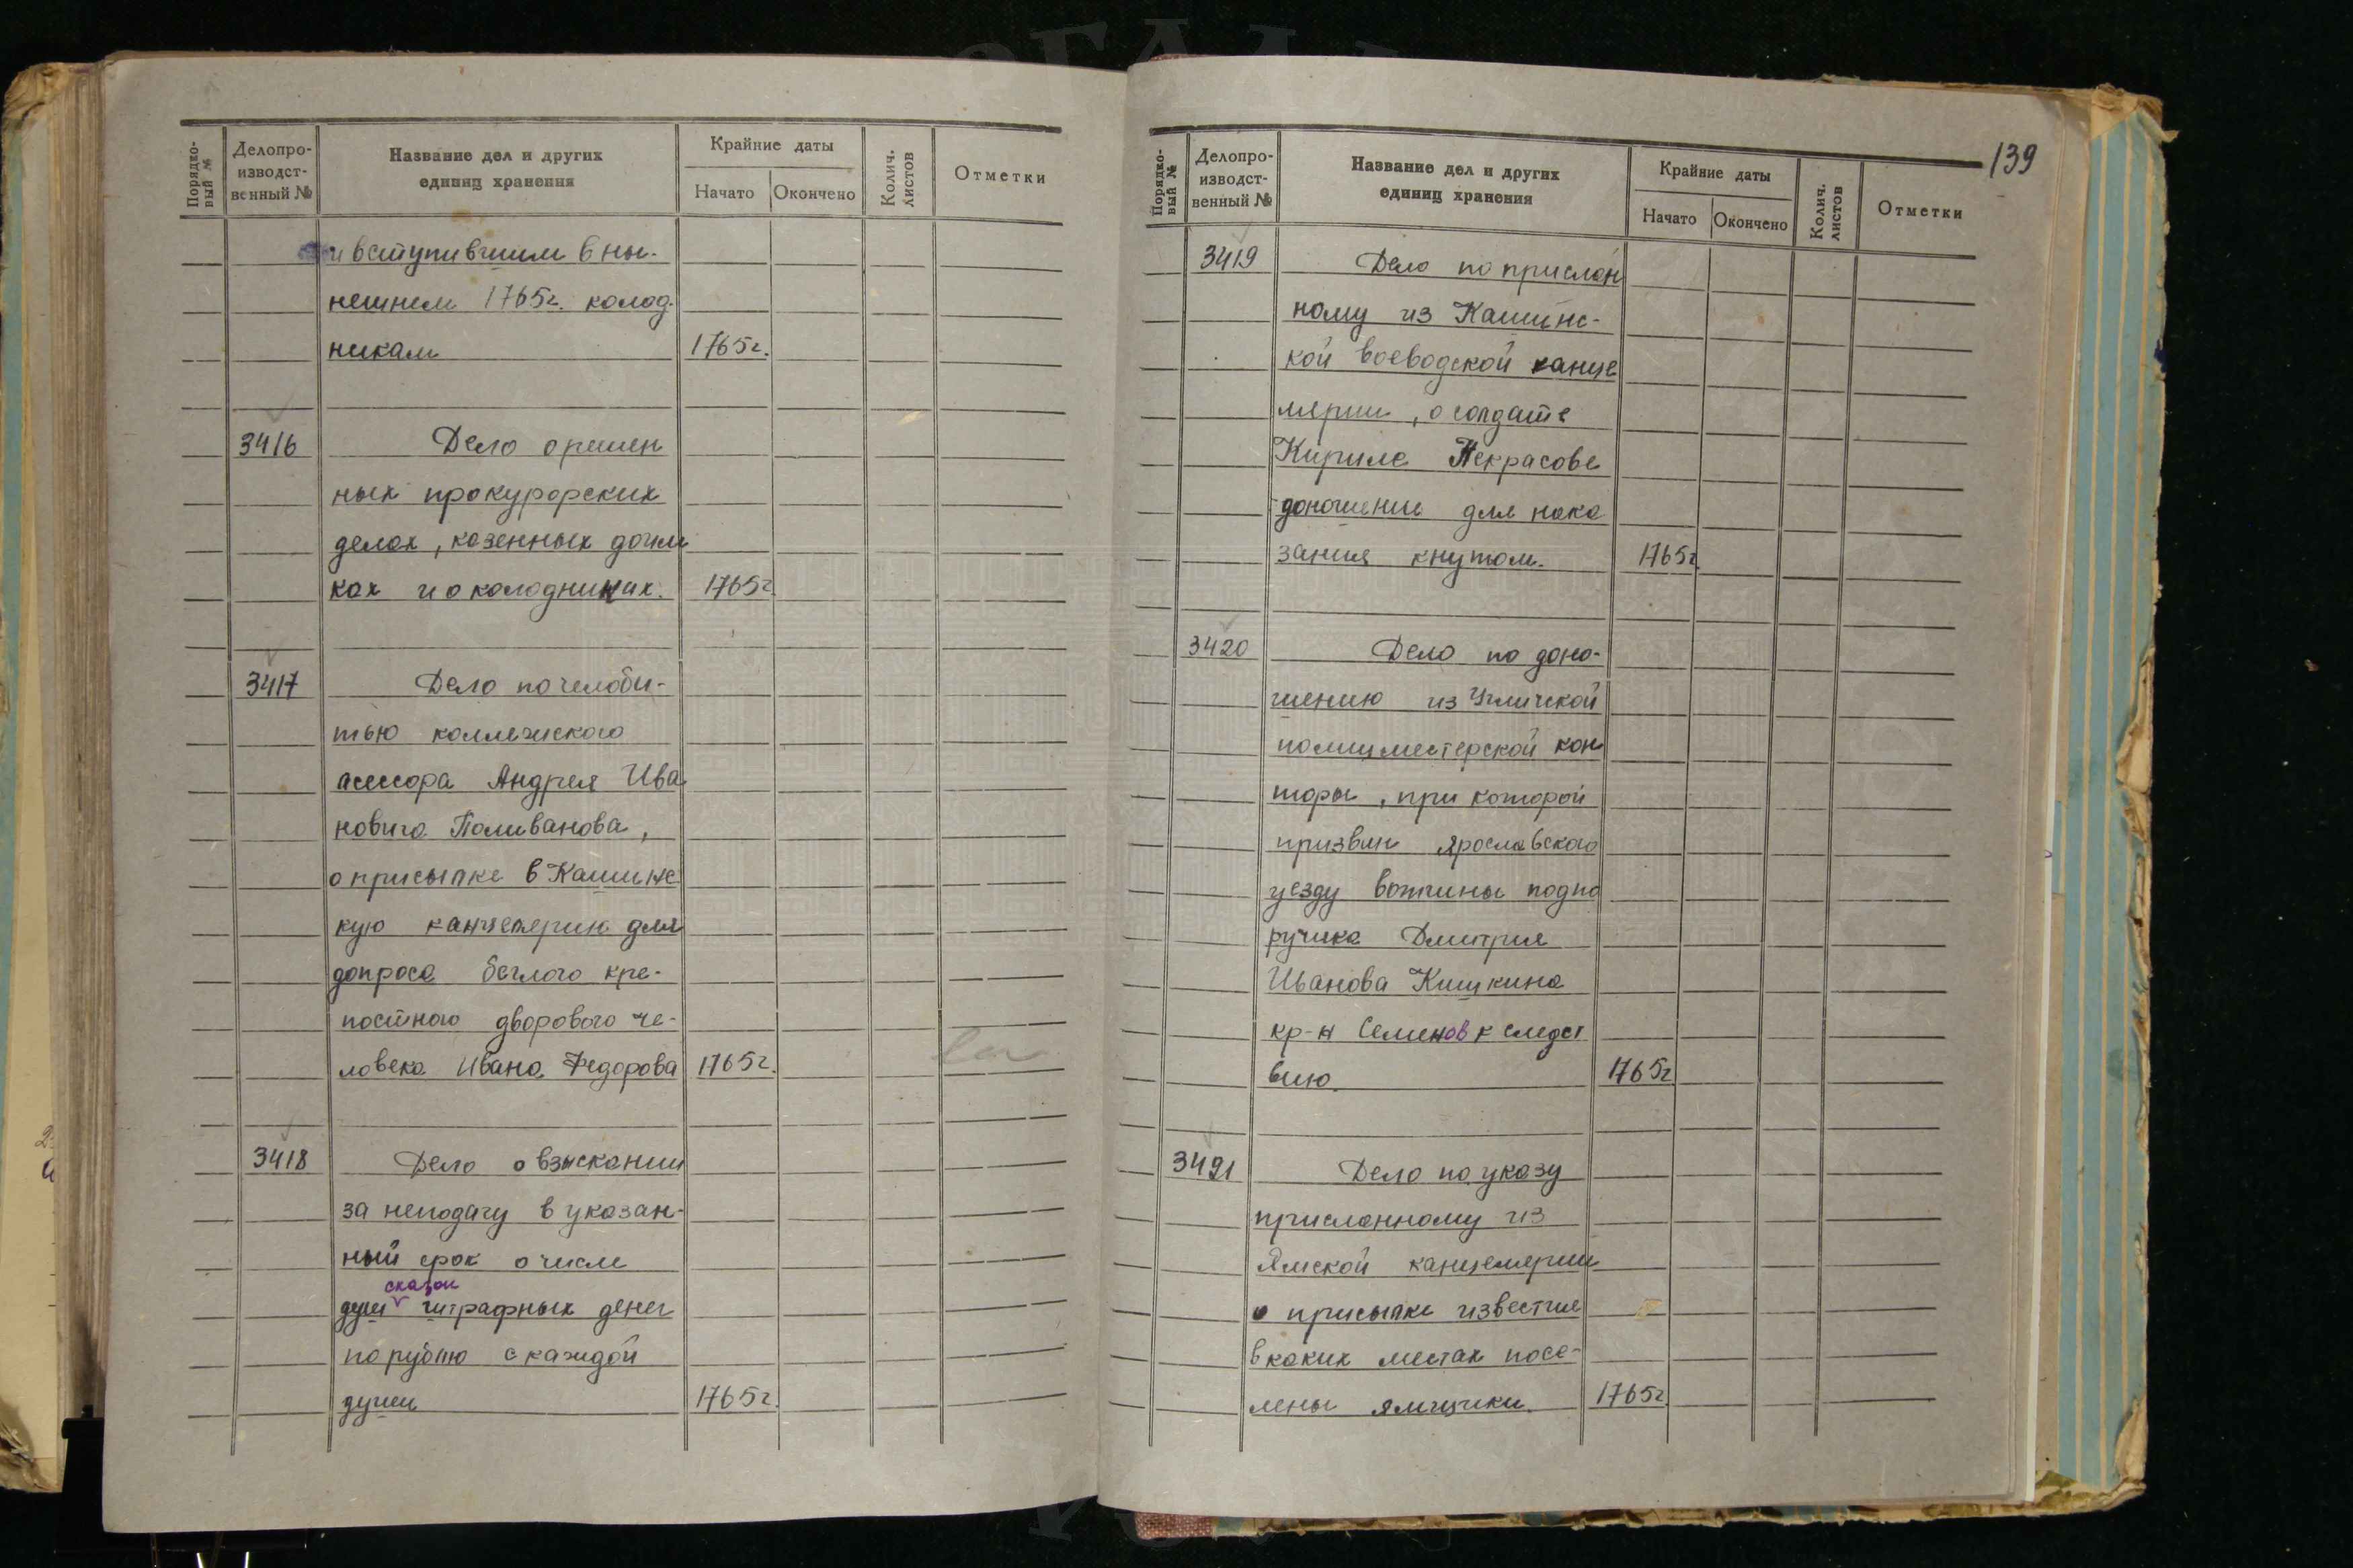 Порядко-
вый №
Делопро-
изводст-
венный №
Название дел и других
единиц хранения
Крайние даты
Начато
Окончено
Колич.
листов
Отметки
и вступившим в ны-
нешнем 1765г. колод-
никам 1765г.
3416 Дело о решен
ных прокурорских
делах, казенных доим
ках и о колодниках. 1765г
3417 Дело по челоби-
тью коллежского
асессора Андрея Ива
новича Поливанова,
о присылке в Кашинс
кую канцелярию для
допроса беглого кре-
постного дворового че-
ловека Ивана Федорова 1765г.
3418 Дело о взыскании
за неподачу в указан-
ный срок о числе
сказок
душ штрафных денег
по рублю с каждой
души 1765г.
139
Порядко-
вый №
Делопро-
изводст-
венный №
Название дел и других
единиц хранения
Крайние даты
Начато
Окончено
Колич.
листов
Отметки
3419 Дело по прислан
ному из Кашинс-
кой воеводской канце
лярии, о солдате
Кириле Некрасове
доношению для нака
зания кнутом. 1765г.
3420 Дело по доно-
шению из Угличской
полицместерской кон
торы, при которой
призвин Ярославского
уезду вотчины подпо
ручика Дмитрия
Иванова Кишкина
кр-н Семенов к следст
вию. 1765г
3421 Дело по указу
присланному из
Ямской канцелярии
о присылке известия
в каких местах посе-
лены ямщики. 1765г.